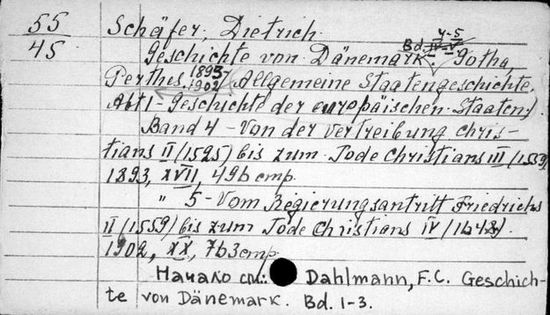 55
45
Schäfer, Dietrich.
Geschichte von Dänemark. Bd. 4-5 Gotha,
Perthes, 1893-1902. (Allgemeine Staatengeschichte.
Abt 1 - Geschichte der europäischen Staaten.)
Band 4 - Von der Vertreibung Chris-
tians II (1525) bis zum Tode Christians III (1559)
1893, XVII, 496 стр.
" 5 - Vom Regierungsantritt Friedrichs
II (1559) bis zum Tode Christians IV (1648).
1902, XX, 763 стр.
Начало см.: Dahlmann, F.C. Geschich-
te von Dänemark. Bd. 1-3.